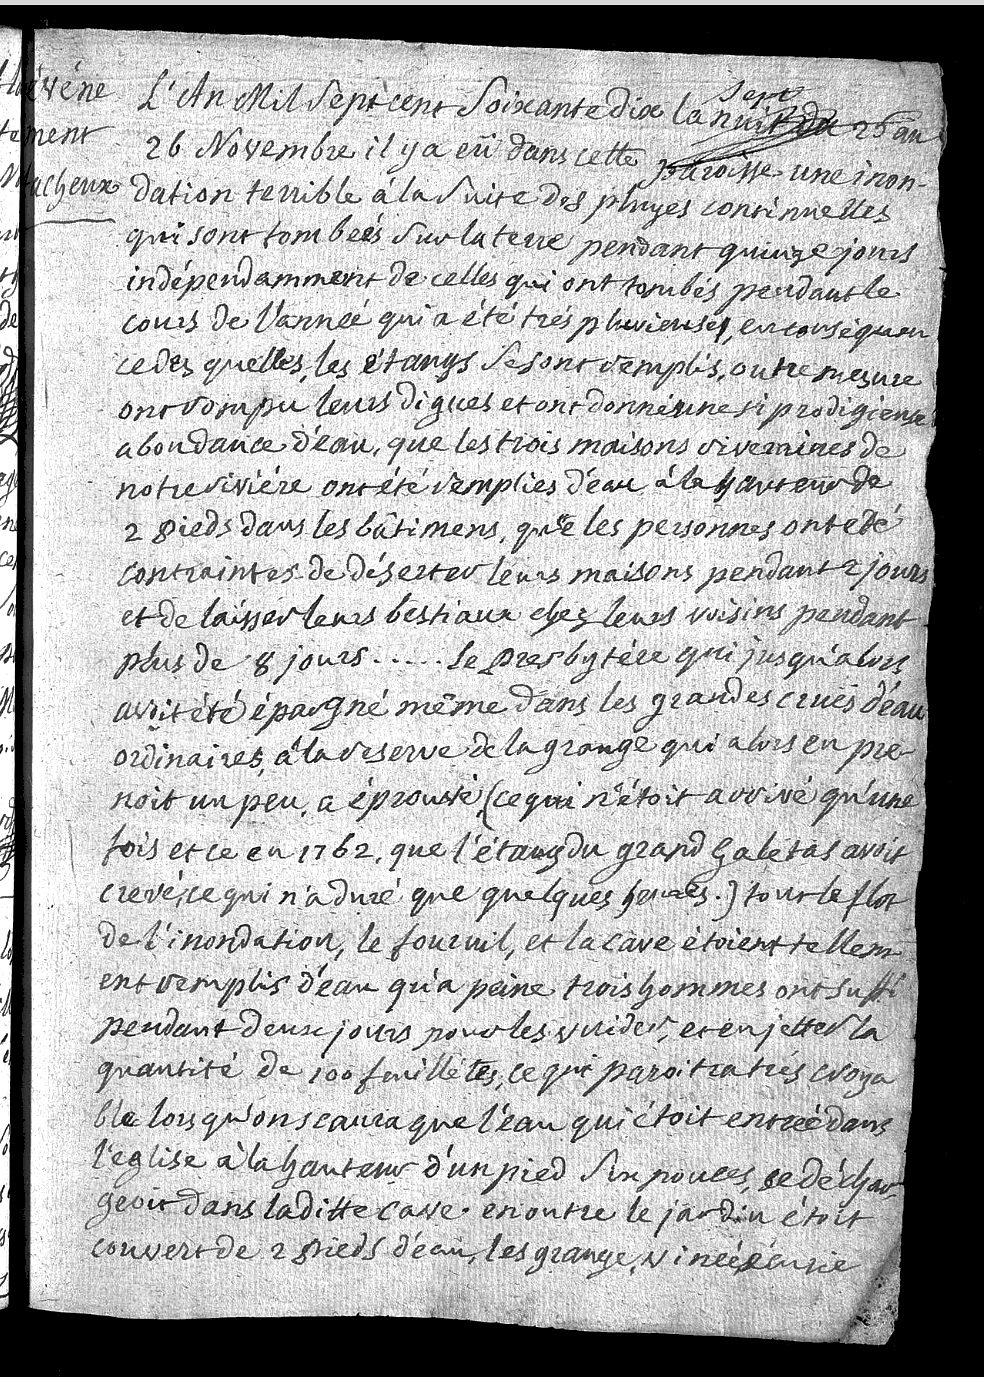 événe
ment
Macheux
L'An Mil Sept cent Soixante dix la nuit du 25 au
26 Novembre il y a eû dans cette paroisse une inon-
dation terrible à la suite des pluyes continuelles
qui sont tombeés sur la terre pendant quinze jours
indépendamment de celles qui ont tombés pendant le
cours de l'année qui a été trés pluvieuse, en conséquen
ce des quelles, les étangs se sont remplis, outre mesure
ont rompu leurs digues et ont donné une si prodigieuse
abondance d'eau, que les trois maisons riveraines de
notre riviére ont été remplies d'eau à la hauteur de
2 pieds dans les bâtimens, que les personnes ont eté
contraintes de déserter leurs maisons pendant 2 jours
et de laisser leurs bestiaux chez leurs voisins pendant
plus de 8 jours..... Le Presbytére qui jusqu'alors
avoit été épargné même dans les grandes crues d'eau
ordinaires, à la reserve de la grange qui alors en pre-
noit un peu, a éprouvé, (ce qui n'étoit arrivé qu'une
fois et ce en 1762, que l'étang du grand galetas avoit
crevé, ce qui n'a duré que quelques heures.) tout le flot
de l'inondation, le fournil, et la cave étoient tellem
ent remplis d'eau qu'a peine trois hommes ont suffi
pendant deux jours pour les vuider, et en jetter la
quantité de 100 feuilletes, ce qui paroitra trés croya
ble lors qu'on scaura que l'eau qui étoit entreé dans
l'eglise à la hauteur d'un pied six pouces, se déchar
geoit dans la ditte cave. en outre le jardin étoit
couvert de 2 pieds d'eau, les grange, vineé écurie